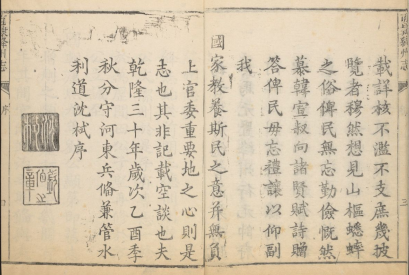 載詳核不濫不支庶幾披
覽者穆然想見山樞蟋蟀
之俗俾民無忘勤儉慨然
慕韓宣叔向諸賢賦詩贈
答俾民毋忘禮讓以仰副
我
國家教養斯民之意并無負
上官委重要地之心則是
志也其非記載空談也夫
乾隆三十年歲次乙酉季
秋分守河東兵備兼管水
利道沈栻序
序